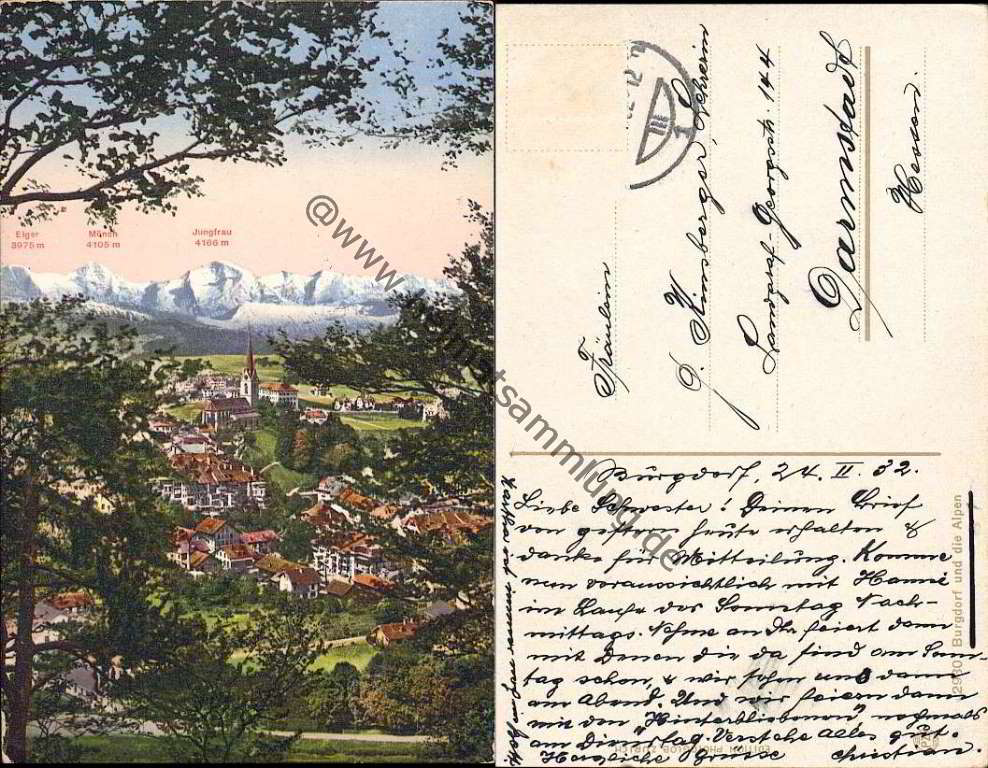 Eiger
3975 m
Mönch
4105 m
Jungfrau
4166 m
@www.ansichtskartsammlung.de
1
III
Fräulein
J. Himsberger, Lehrerin
Landgraf-Georgstr. 144
Darmstadt
Hessen.
Burgdorf, 24. II. 32.
Liebe Schwester! Deinen Brief
von gestern heute erhalten &
danke für Mitteilung. Komme
nun voraussichtlich mit Hanni
im Laufe des Sonntag Nach-
mittags. Nehme an Ihr feiert dann
mit Denen die da sind am Sam-
tag schon, & wir sehn uns dann
am Abend. Und wir feiern dann
mit den "Hinterbliebenen" nochmals
am Dienstag. Verstehe Alles gut.
Herzliche Grüsse Christian.
Burgdorf und die Alpen
EDITION PHOTOGLOB ZÜRICH